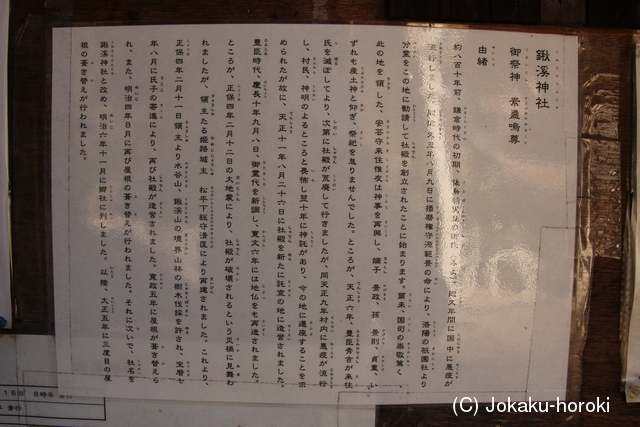 鍬溪神社
御祭神 素盞嗚尊
由緒
約八百十年前、鎌倉時代の初期、後鳥羽天皇の御代、
久年間に国中に悪疫が
流行しました。同じ建久五年八月九日に播磨権守源範景の命により、洛陽の祇園社より
分霊をこの地に勧請して社殿を創立されたことに始まります。爾来、国司の崇敬篤く、
此の地を領した、安芸守来住惟友は神事を再興し、嫡子 景政、孫 景則、貞重、い
ずれも産土神と仰ぎ、祭祀を怠りませんでした。ところが、天正六年、豊臣秀吉が来住
氏を滅ぼしてより、次第に社殿が荒廃して行きましたが、同天正九年村内に悪疫が流行
し、村民、神明のよるところと畏怖し翌十年に神託があり、今の地に遷座することを求
められたが故に、天正十一年八月二十六日に社殿を新たに託宣の地に造営されました。
豊臣時代、慶長十年九月八日、御霊代を新調し、寛文六年には地仏をも再造されました。
ところが、正保四年二月十二日の大地震により、社殿が破壊されるという災禍に見舞わ
れましたが、領主たる姫路城主 松平下総守清匡により再建されました。これより、
正保四年二月十一日領主より水谷山、鍬溪山の境界山林の樹木伐採を許され、宝暦七
年八月に氏子の寄進により、再び社殿が造営されました。寛政五年に屋根が葺き替えら
れ、また、明治四年日月に再び屋根の葺き替えが行われました。それに次いで、社名を
鍬溪神社と改め、明治六年十一月に郷社に列しました。以降、大正五年に三度目の屋
根の葺き替えが行われました。
(C) Jokaku-horoki